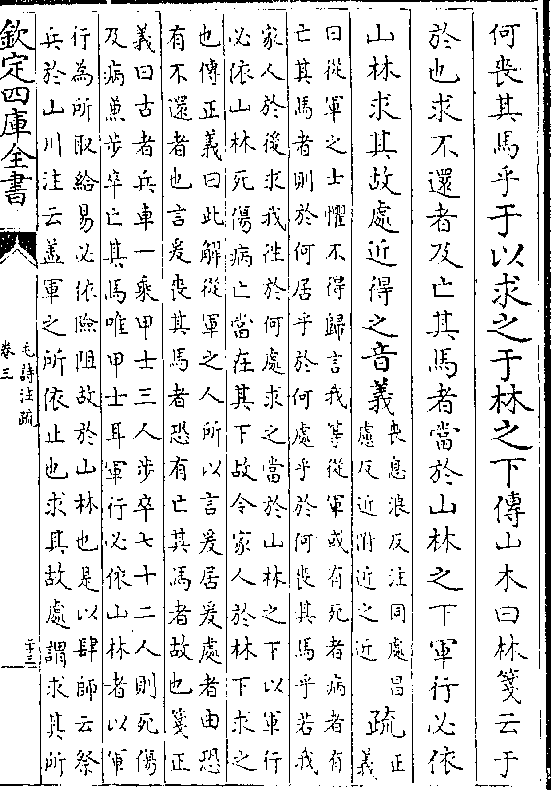 何喪其馬乎于以求之于林之下傳山木曰林箋云于
於也求不還者及亡其馬者當於山林之下軍行必依
山林求其故處近得之音義喪息浪反注同處昌
處反近附近之近疏正
義
曰從軍之士懼不得歸言我等從軍或有死者病者有
亡其馬者則於何居乎於何處乎於何喪其馬乎若我
家人於後求我往於何處求之當於山林之下以軍行
必依山林死傷病亡當在其下故令家人於林下求之
也傳正義曰此解從軍之人所以言爰居爰處者由恐
有不還者也言爰喪其馬者恐有亡其馬者故也箋正
義曰古者兵車一乘甲士三人步卒七十二人則死傷
及病兼步卒亡其馬唯甲士耳軍行必依山林者以軍
行為所取給易必依險阻故於山林也是以肆師云祭
兵於山川注云蓋軍之所依止也求其故處謂求其所
欽定四庫全書
毛詩注疏
卷三
二十三